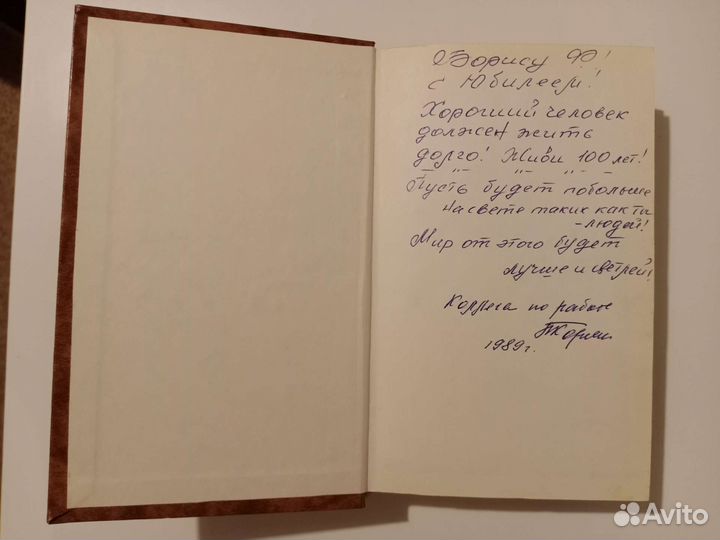 Борису Ф!
с Юбилеем!
Хороший человек
должен жить
долго! Живи 100 лет!
Пусть будет побольше
на свете таких как ты
- людей!
Мир от этого будет
лучше и светлей!
Коллега по работе
1989 г.
Avito